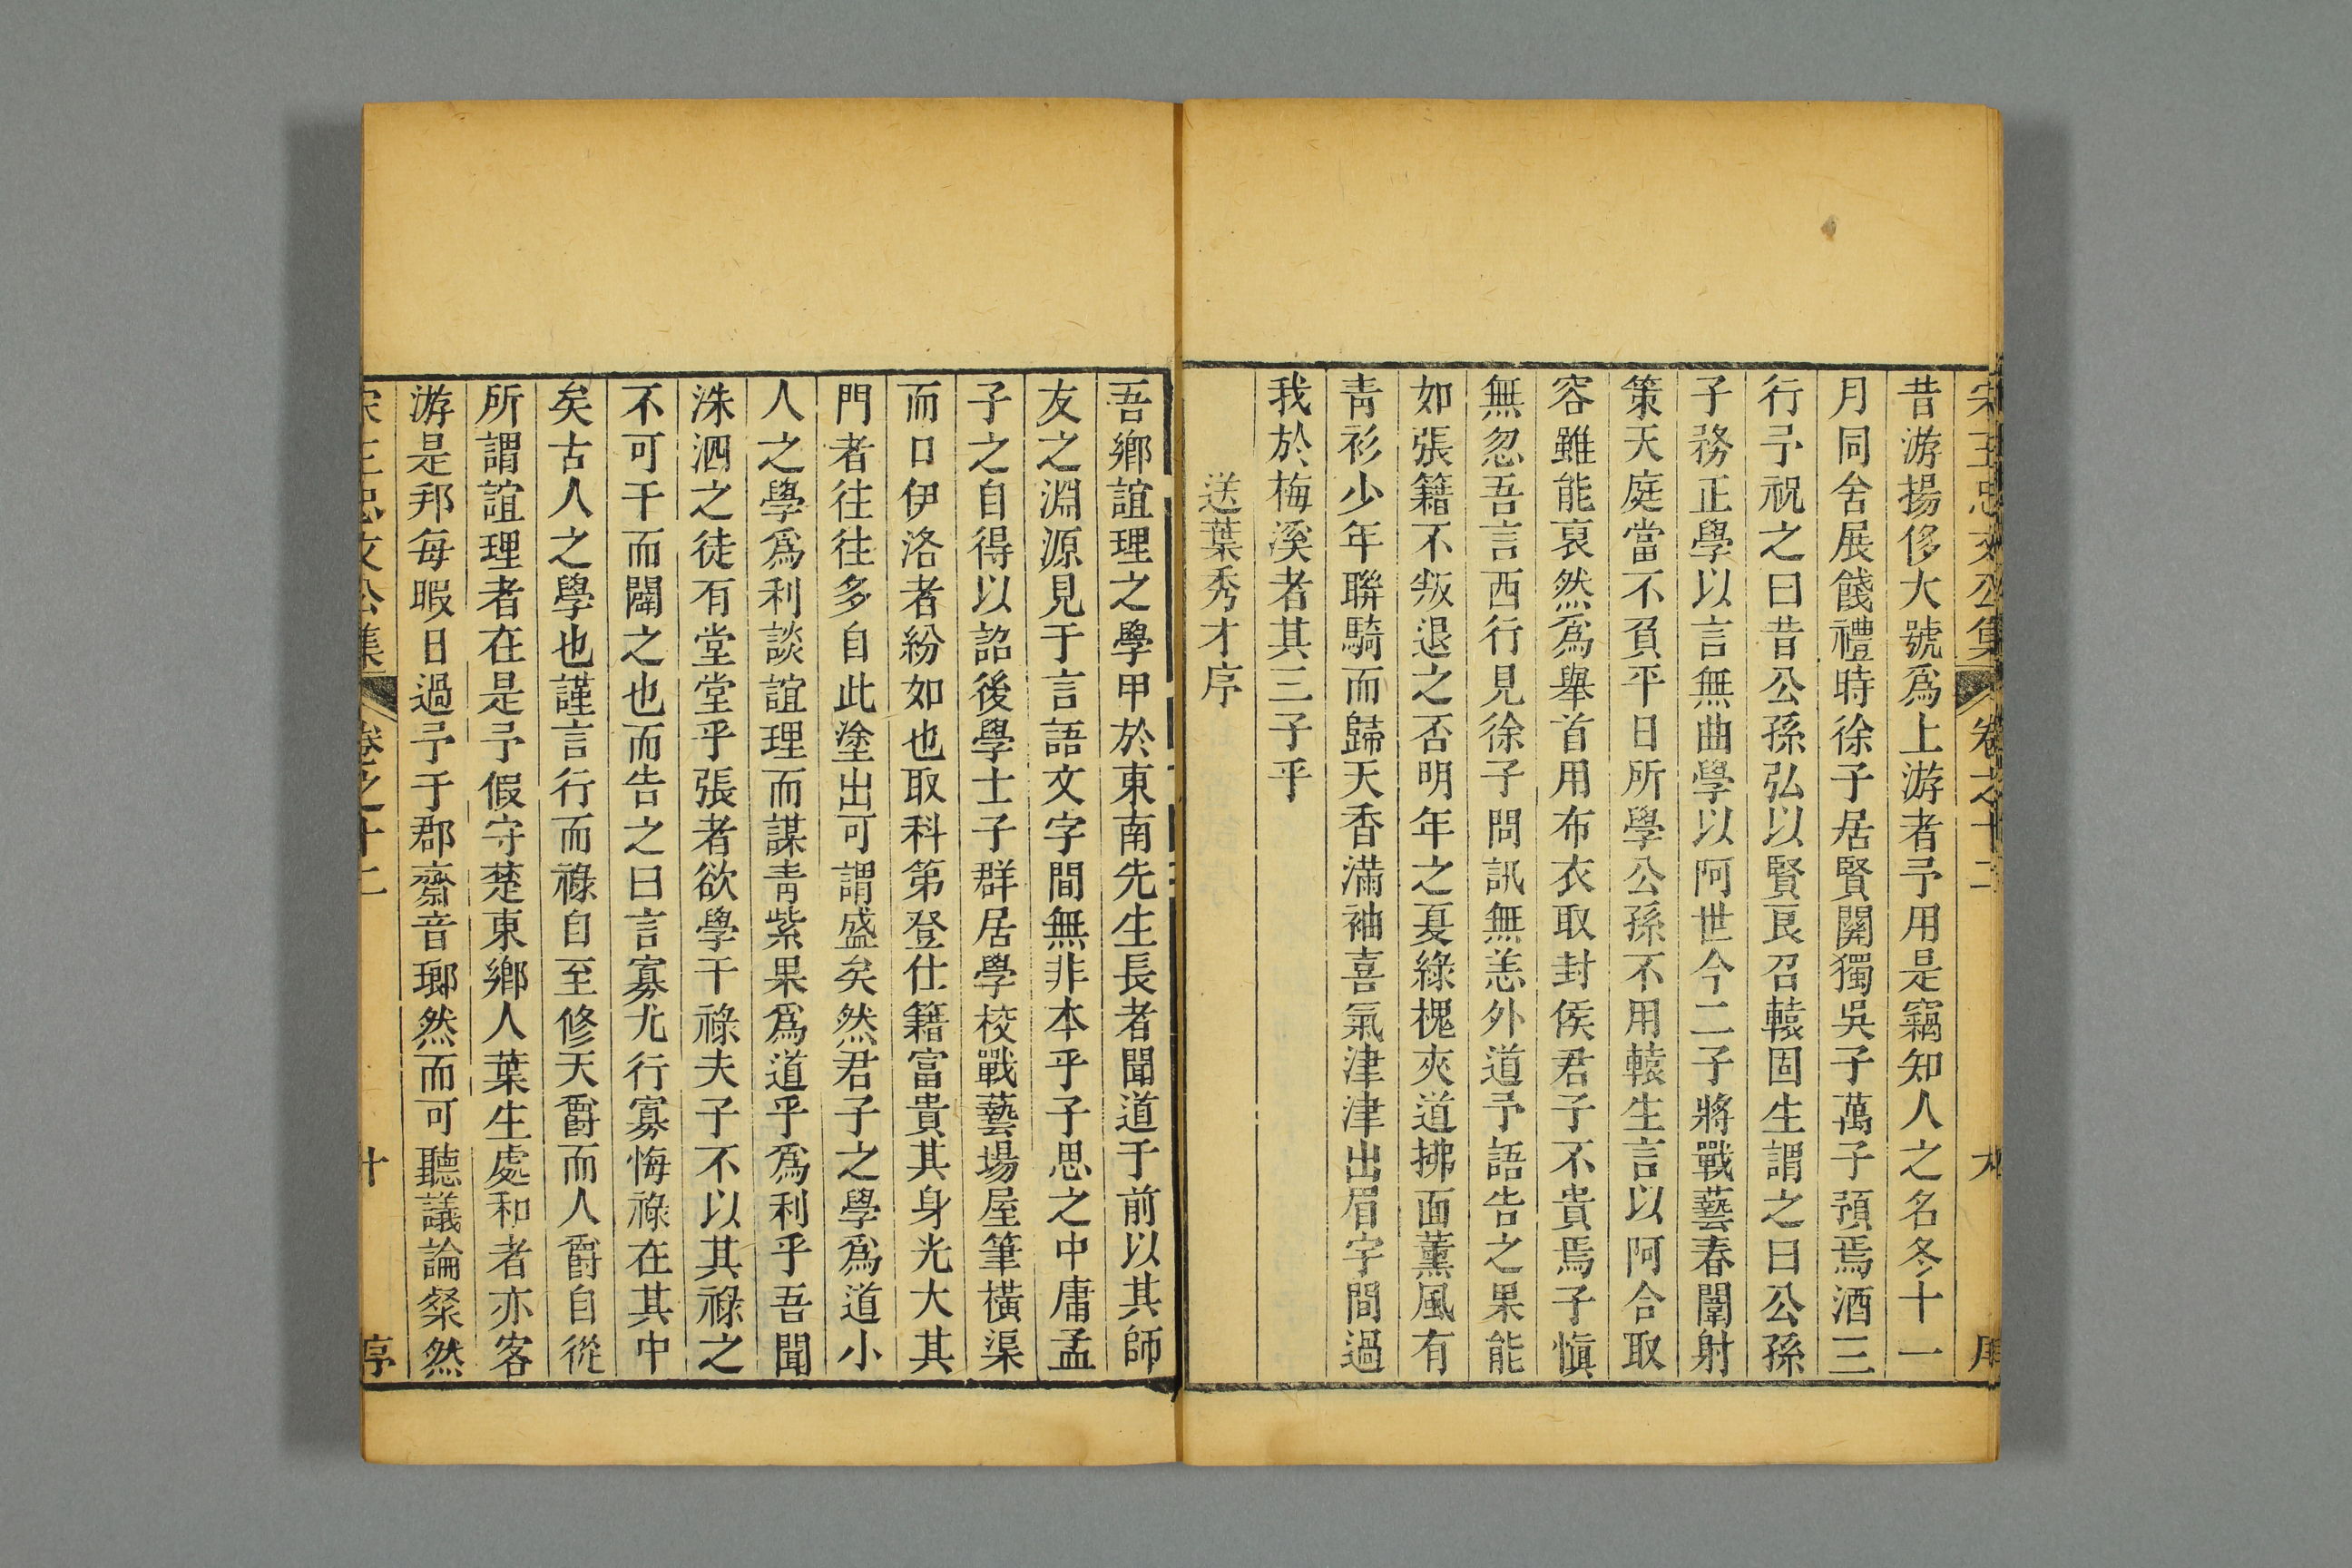 宋王忠文公集 卷之十二 九 序
昔游揚侈大號爲上游者予用是竊知人之名冬十一
月同舍展餞禮時徐子居賢闗獨吳子萬子預焉酒三
行予祝之曰昔公孫弘以賢良召轅固生謂之曰公孫
子務正學以言無曲學以阿世今二子將戰藝春闈射
策天庭當不負平日所學公孫不用轅生言以阿合取
容雖能裒然爲舉首用布衣取封侯君子不貴焉子愼
無忽吾言西行見徐子問訊無恙外道予語告之果能
如張籍不叛退之否明年之夏綠槐夾道拂面薰風有
靑衫少年聯騎而歸天香滿袖喜氣津津出眉宇間過
我於梅溪者其三子乎
送葉秀才序
吾鄉誼理之學甲於東南先生長者聞道于前以其師
友之淵源見于言語文字間無非本乎子思之中庸孟
子之自得以詔後學士子群居學校戰藝場屋筆橫渠
而口伊洛者紛如也取科第登仕籍富貴其身光大其
門者往往多自此塗出可謂盛矣然君子之學爲道小
人之學爲利談誼理而謀靑紫果爲道乎爲利乎吾聞
洙泗之徒有堂堂乎張者欲學干祿夫子不以其祿之
不可干而闢之也而告之曰言寡尤行寡悔祿在其中
矣古人之學也謹言行而祿自至修天爵而人爵自從
所謂誼理者在是予假守楚東鄉人葉生處和者亦客
游是邦每暇日過予于郡齋音瑯然而可聽議論粲然
宋王忠文公集 卷之十二 十 序